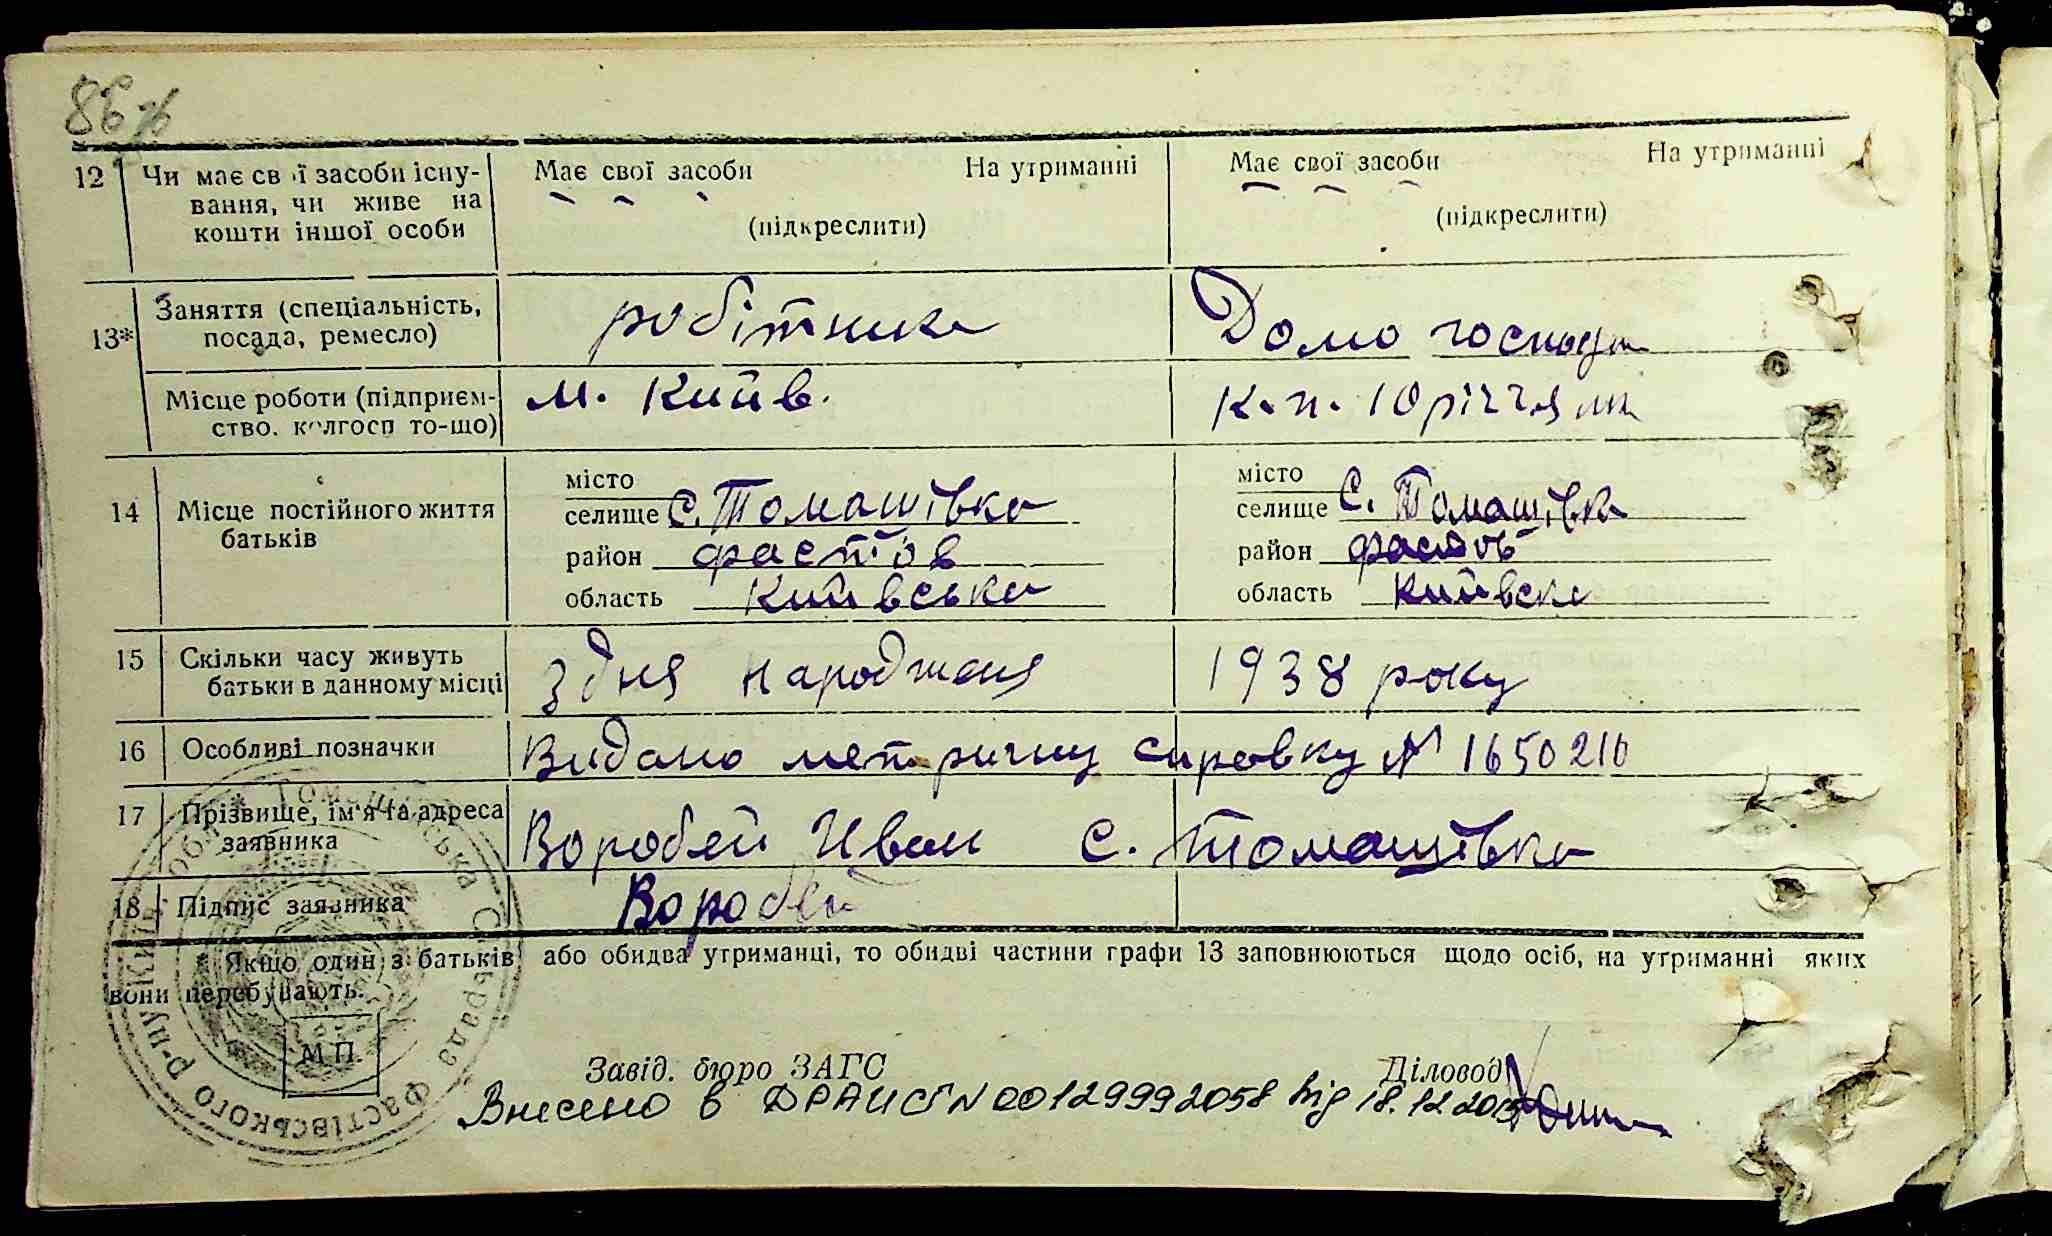 86
12 Чи має свої засоби існу- Має свої засоби На утриманні Має свої засоби На утриманні
вання, чи живе на
кошти іншої особи (підкреслити) (підкреслити)
13* Заняття (спеціальність, робітника Домо господ
посада, ремесло)
Місце роботи (підприєм- м. Київ. к.п. 10 річчя
ство, колгосп то-що)
14 Місце постійного життя місто місто
батьків селище с. Томашівка селище С. Томашівка
район фастов район фастов
область Київська область Київска
15 Скільки часу живуть з дня народженя 1938 року
батьки в данному місці
16 Особливі позначки Видано метричну справку № 1650210
17 Прізвище, ім'я та адреса Воробей Иван с. Томашівка
заявника
18 Підпис заявника Воробей
Якщо один з батьків або обидва утриманці, то обидві частини графи 13 заповнюються щодо осіб, на утриманні яких
вони перебувають.
М.П.
Томашівська Сільрада Фастівського р-ну Київ обл.
Завід. бюро ЗАГС Діловод
Внесено в ДРАЦСГ N 00129992058 від 18.12.2015